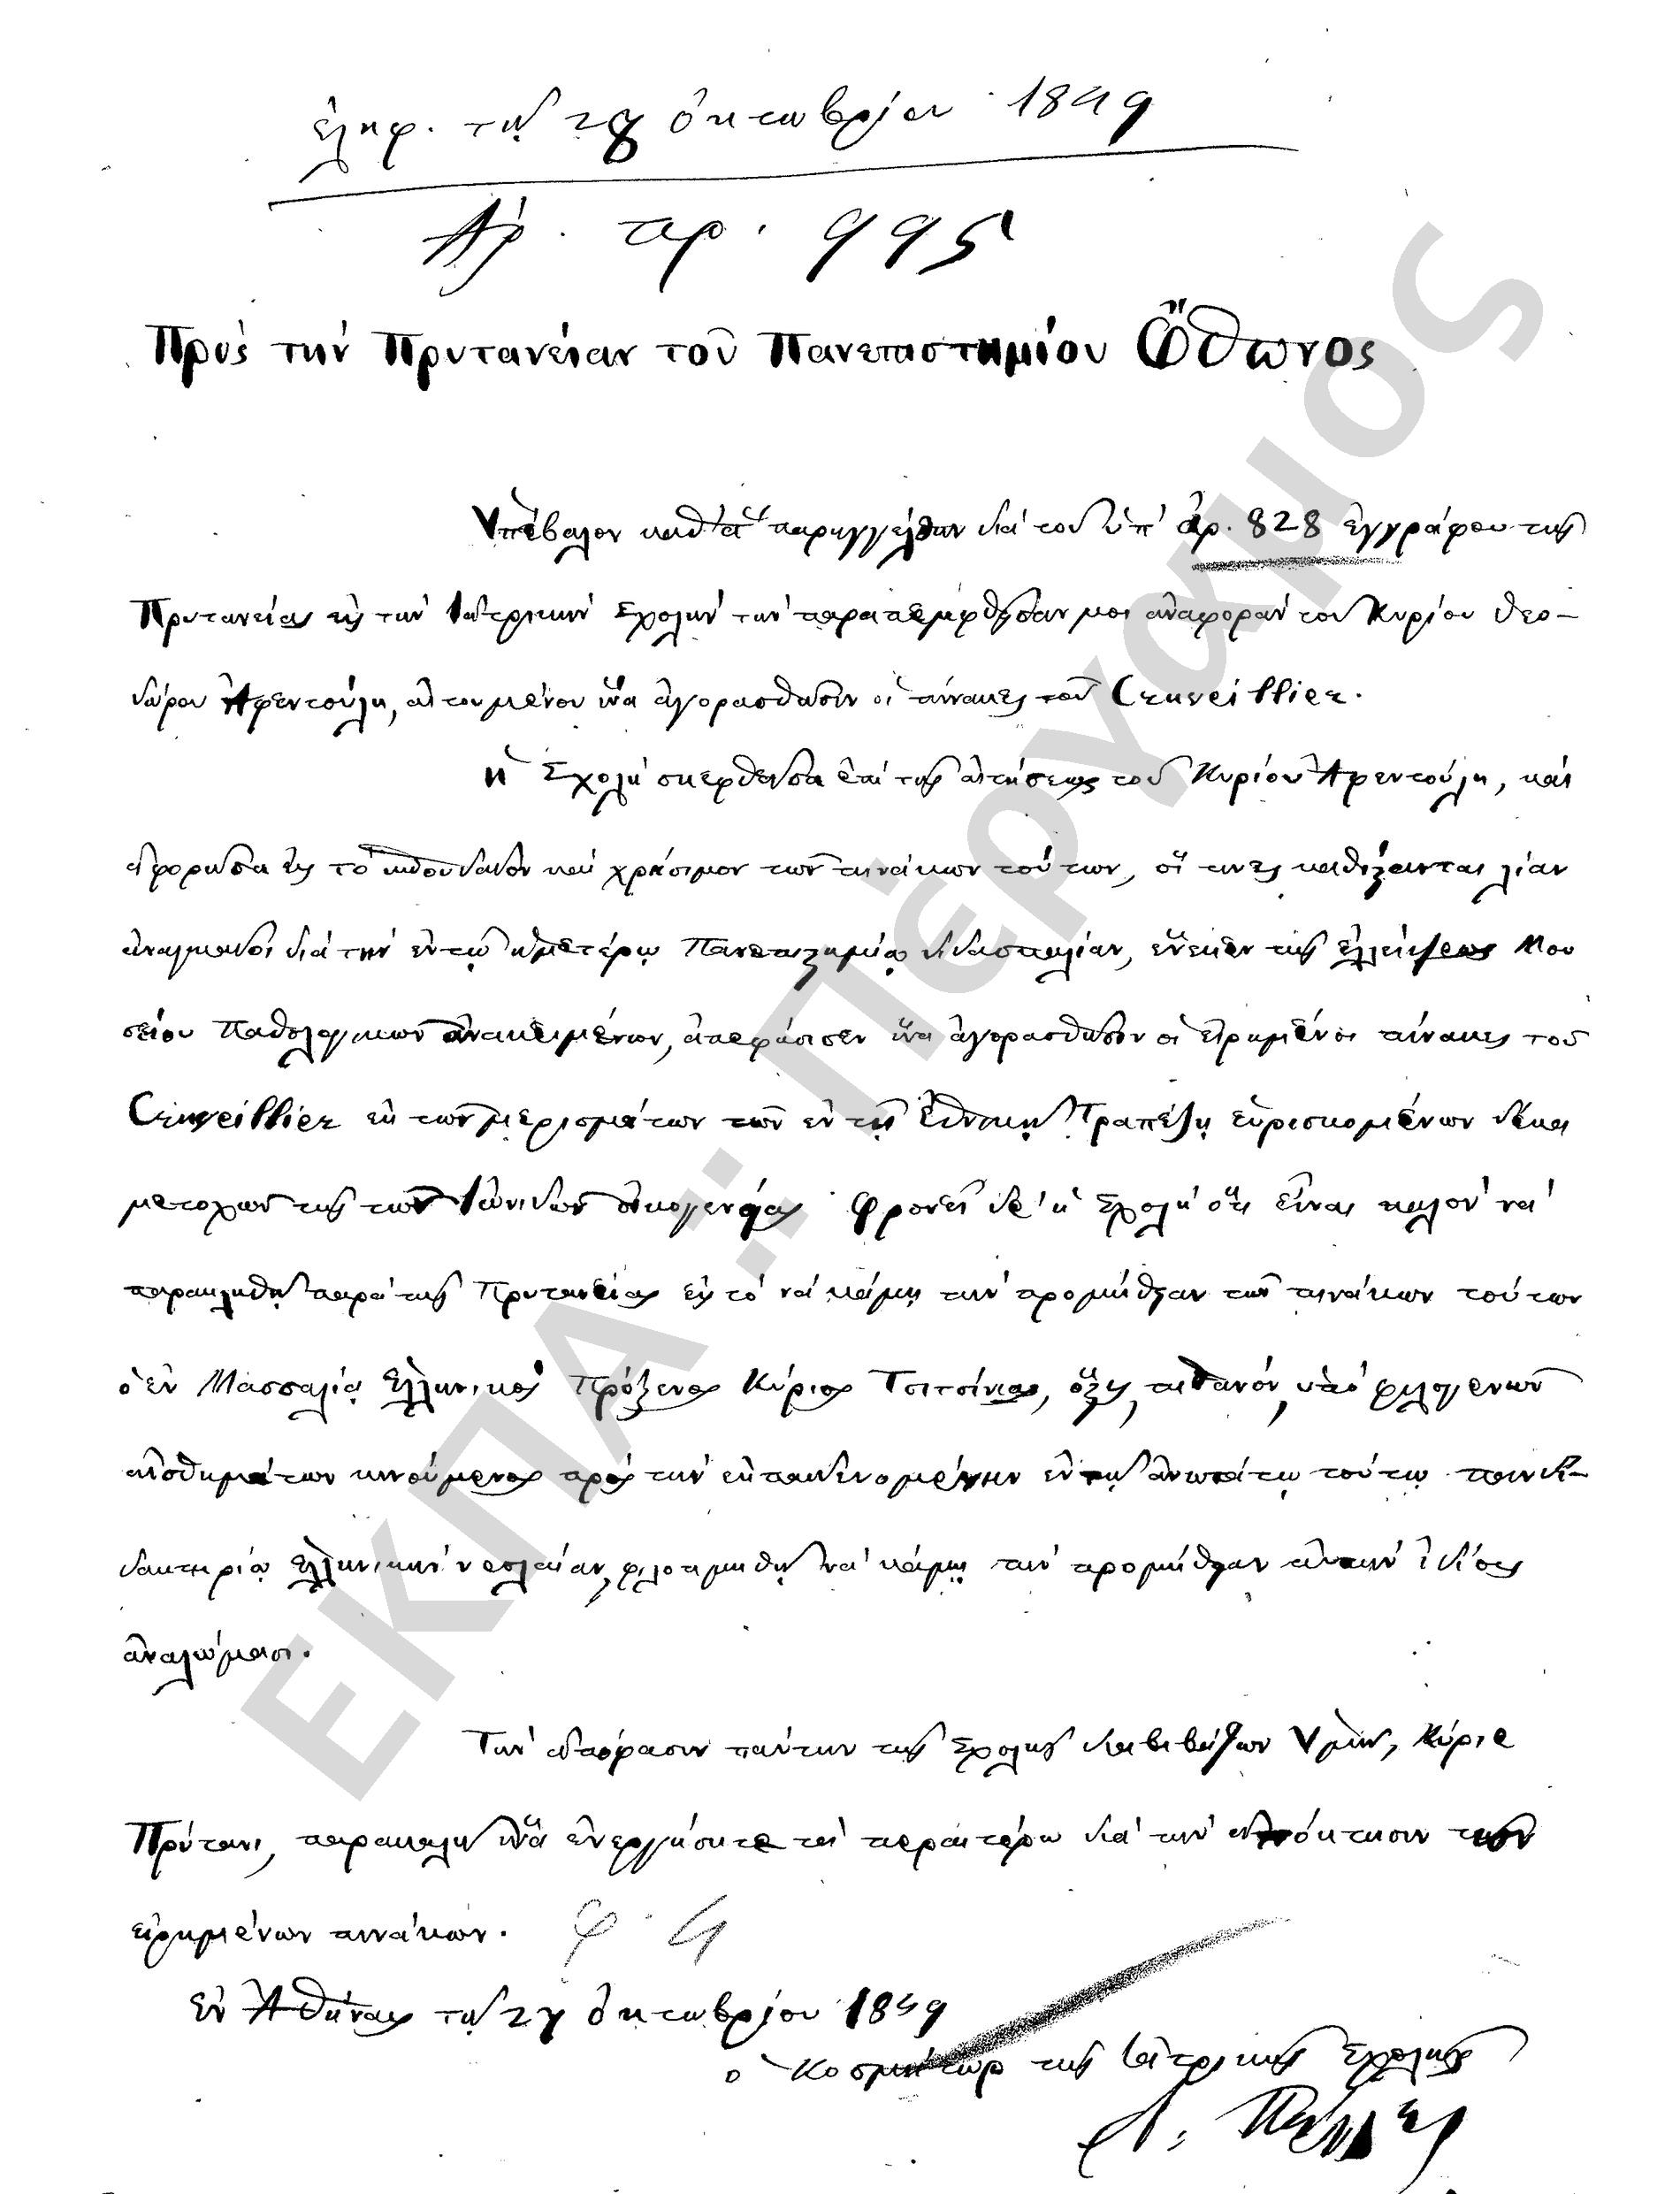 ἐλήφ. τῇ 28 Ὀκτωβρίου 1849
Ἀρ. πρ. 995
Πρὸς τὴν Πρυτανείαν τοῦ Πανεπιστημίου Ὄθωνος
Ὑπέβαλον καθ' ἃ παρηγγέλθην διὰ τοῦ ὑπ' ἀρ. 828 ἐγγράφου τῆς
Πρυτανείας εἰς τὴν Ἰατρικὴν Σχολὴν τὴν παραπεμφθεῖσάν μοι ἀναφορὰν τοῦ Κυρίου Θεο-
δώρου Ἀφεντούλη, αἰτουμένου ἵνα ἀγορασθῶσιν οἱ πίνακες τοῦ Cruveilhier.
Ἡ Σχολὴ σκεφθεῖσα ἐπὶ τῆς αἰτήσεως τοῦ Κυρίου Ἀφεντούλη, καὶ
ἀφορῶσα εἰς τὸ σπουδαῖον καὶ χρήσιμον τῶν πινάκων τούτων, οἵτινες καθίζανται λίαν
ἀναγκαῖοι διὰ τὴν ἐν τῷ ἡμετέρῳ Πανεπιστημίῳ διδασκαλίαν, ἕνεκεν τῆς ἐλλείψεως Μου
σείου Παθολογικῶν ἀνακειμένων, ἀπεφάσισεν ἵνα ἀγορασθῶσιν οἱ εἰρημένοι πίνακες τοῦ
Cruveilhier ἐκ τῶν μερισμάτων τῶν ἐν τῇ Ἐθνικῇ Τραπέζῃ εὑρισκομένων δέκα
μετοχῶν τῆς τῶν Ἰωνιδῶν οἰκογενείας. Φρονεῖ δὲ ἡ Σχολὴ ὅτι εἶναι καλὸν νὰ
παρακληθῇ παρὰ τῆς Πρυτανείας εἰς τὸ νὰ κάμῃ τὴν προμήθειαν τῶν πινάκων τούτων
ὁ ἐν Μασσαλίᾳ Ἑλληνικὸς Πρόξενος Κύριος Τσιτσίνιας, ὅστις, πιθανόν, ὑπὸ φιλογενῶν
αἰσθημάτων κινούμενος πρὸς τὴν ἐκπαιδευομένην ἐν τῷ ἀνωτάτῳ τούτῳ παιδι-
δακτηρίῳ Ἑλληνικὴν νεολαίαν, φιλοτιμηθῇ νὰ κάμῃ τὴν προμήθειαν αὐτὴν ἰδίοις
ἀναλώμασι.
Τὴν ἀπόφασιν ταύτην τῆς Σχολῆς διαβιβάζων Ὑμῖν, Κύριε
Πρύτανι, παρακαλῶ ἵνα ἐνεργήσητε τὰ περαιτέρω διὰ τὴν ἀπόκτησιν τῶν
εἰρημένων πινάκων. φ. 4
Ἐν Ἀθήναις τῇ 27 Ὀκτωβρίου 1849
Ὁ Κοσμήτωρ τῆς Ἰατρικῆς Σχολῆς
Α. Πάλλης
ΕΚΠΑ: ΠΕΡΓΑΜΟΣ